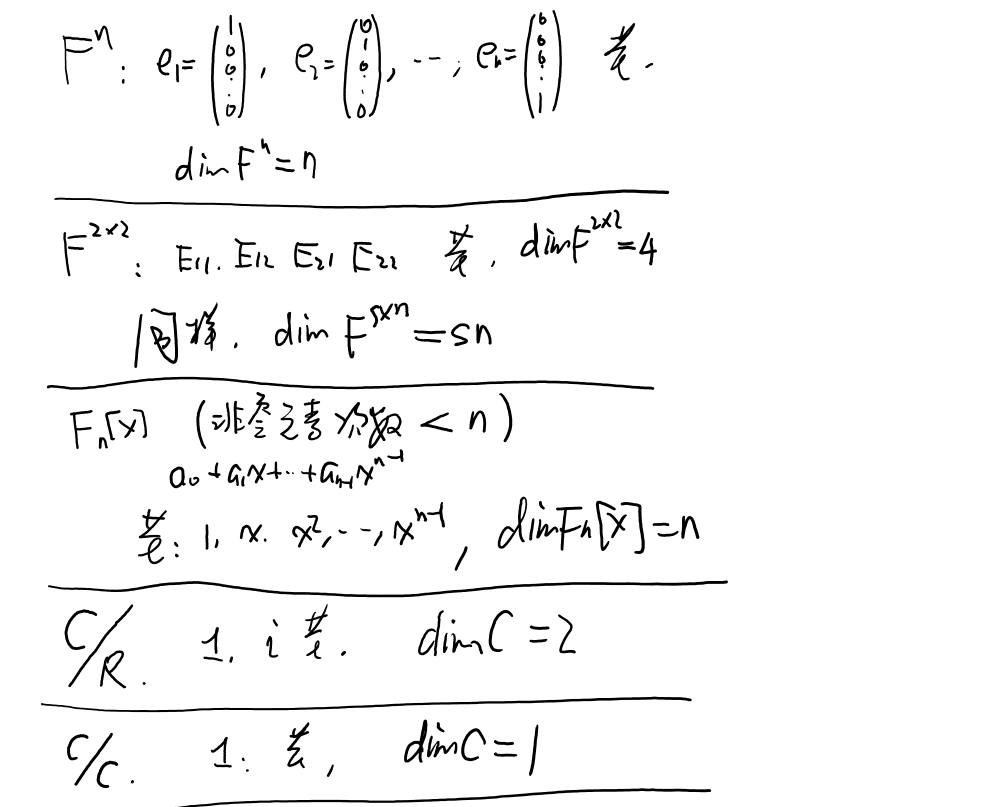 Fⁿ: e₁=(1 0 0 ⋮ 0), e₂=(0 1 0 ⋮ 0), ⋯, eₙ=(0 0 0 ⋮ 1) 基.
dim Fⁿ=n
F²ˣ²: E₁₁. E₁₂ E₂₁ E₂₂ 基. dimF²ˣ²=4
同样. dim Fˢˣⁿ=sn
Fₙ[x] (非零元素次数<n)
a₀+a₁x+⋯+aₙ₋₁xⁿ⁻¹
基: 1, x. x², ⋯, xⁿ⁻¹, dimFₙ[x]=n
C/R. 1. i 基. dimC=2
C/C. 1. 基, dimC=1